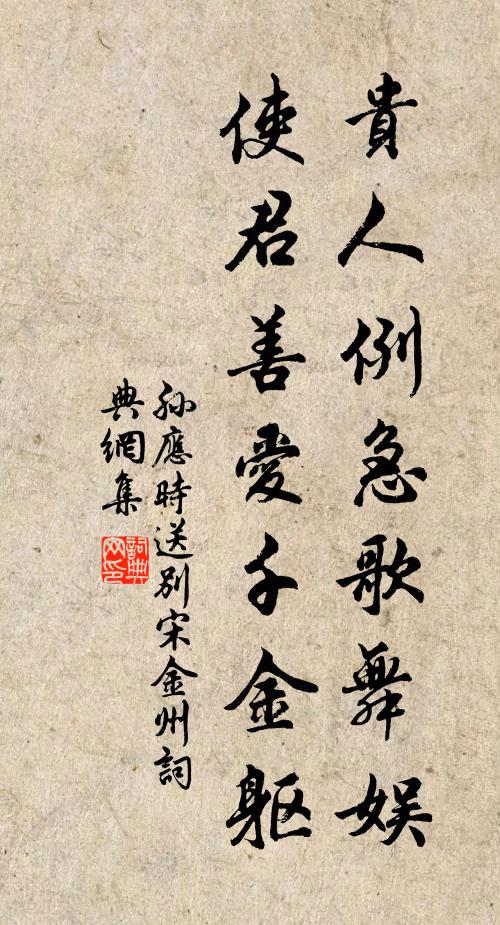 貴人例急歌舞娱
使君善愛千金軀
孫應時送別宋金州詞
典網集
詞典
网印